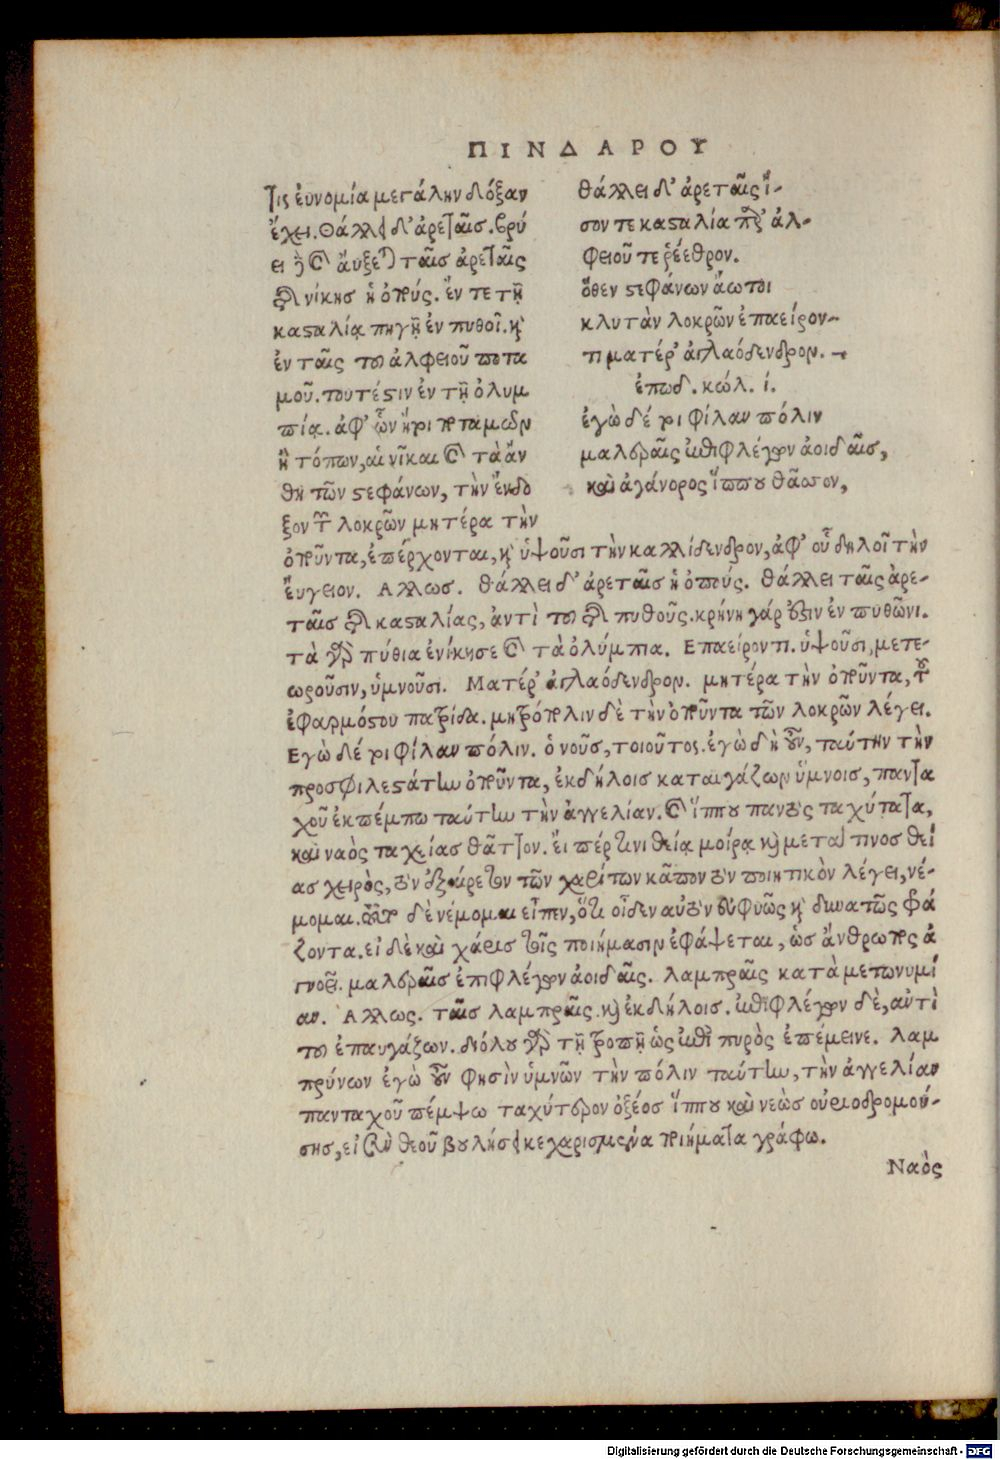 ΠΙΝΔΑΡΟΥ
τις ἐυνομία μεγάλην δόξαν
ἔχει. Θάλλει δ' ἀρεταῖσ. βρύ
ει καὶ ἄυξεται ταῖσ ἀρεταῖς
τῆς νίκησ ἡ ὀποῦς. ἔν τε τῇ
κασταλίᾳ πηγῇ ἐν πυθοῖ. καὶ
ἐν ταῖς τοῦ ἀλφειοῦ ποτα
μοῦ. τουτέστιν ἐν τῇ ὀλυμ
πίᾳ. ἀφ' ὧν
τόπων, αἱ νῖκαι καὶ τὰ ἄν
θη τῶν στεφάνων, τὴν ἔνδο
ξον τῶν λοκρῶν μητέρα τὴν
θάλλει δ' ἀρεταῖς ἵ-
σον τε κασταλία παρ' ἀλ-
φειοῦ τε ῥέεθρον.
ὅθεν στεφάνων ἄωτοι
κλυτὰν λοκρῶν ἐπαείρον-
τι ματέρ' ἀγλαόδενδρον.
ἐπωδ. κώλ. ί.
ἐγὼ δέ τοι φίλαν πόλιν
μαλεραῖς ἐπιφλέγων ἀοιδαῖσ,
καὶ ἀγάνορος ἵππου θᾶσσον,
ὀποῦντα, ἐπέρχονται, καὶ ὑψοῦσι τὴν καλλίδενδρον, ἀφ' οὗ δηλοῖ τὴν
ἔυγειον. Αλλωσ. θάλλει δ' ἀρεταῖσ ἡ ὀποῦς. θάλλει ταῖς ἀρε-
ταῖσ τῆς κασταλίας, ἀντὶ τοῦ τῆς πυθοῦς. κρήνη γάρ ἐστιν ἐν πυθῶνι.
τὰ γὰρ πύθια ἐνίκησε καὶ τὰ ὀλύμπια. Επαείροντι. ὑψοῦσι, μετε-
ωροῦσιν, ὑμνοῦσι. Ματέρ' ἀγλαόδενδρον. μητέρα τὴν ὀποῦντα, τοῦ
ἐφαρμόστου πατρίδα. μητρόπολιν δὲ τὴν ὀποῦντα τῶν λοκρῶν λέγει.
Εγὼ δέ τοι φίλαν πόλιν. ὁ νοῦσ, τοιοῦτος. ἐγὼ δὴ οὖν, ταύτην τὴν
προσφιλεστάτην ὀποῦντα, ἐκδήλοισ καταυγάζων ὕμνοισ, παντα
χοῦ ἐκπέμπω ταύτην τὴν ἀγγελίαν. καὶ ἵππου παντὸς ταχύτατα,
καὶ ναὸς ταχείασ θᾶττον. ἔι πέρ τινι θείᾳ μοίρᾳ καὶ μετά τινοσ θεί
ασ χειρὸς, τὸν ἐξαίρετον τῶν χαρίτων κᾶπον τὸν ποιητικὸν λέγει, νέ-
μομαι. δὲ νέμομαι εἶπεν, ὅτι οἶδεν αὐτὸν εὐφυῶς καὶ δυνατῶς φρά
ζοντα. εἰ δὲ καὶ χάρισ τοῖς ποιήμασιν ἐφάψεται, ὡσ ἄνθρωπος ἀ
γνοεῖ. μαλεραῖσ ἐπιφλέγων ἀοιδαῖς. λαμπραῖς κατὰ μετωνυμί
αν. Αλλως. ταῖσ λαμπραῖς καὶ ἐκδήλοισ. ἐπιφλέγων δὲ, αντὶ
του ἐπαυγάζων. διόλου γὰρ τῇ τροπῇ ὡς ἐπὶ πυρὸς ἐπέμεινε. λαμ
πρύνων ἐγὼ οὖν φησὶν ὑμνῶν τὴν πόλιν ταύτην, τὴν ἀγγελίαν
πανταχοῦ πέμψω ταχύτερον ὀξέοσ ἵππου καὶ νεὼσ οὐριοδρομού-
σησ, εἰ σὺν θεοῦ βουλήσει κεχαρισμένα ποιήματα γράφω.
Ναὸς
Digitalisierung gefördert durch die Deutsche Forschungsgemeinschaft - DFG